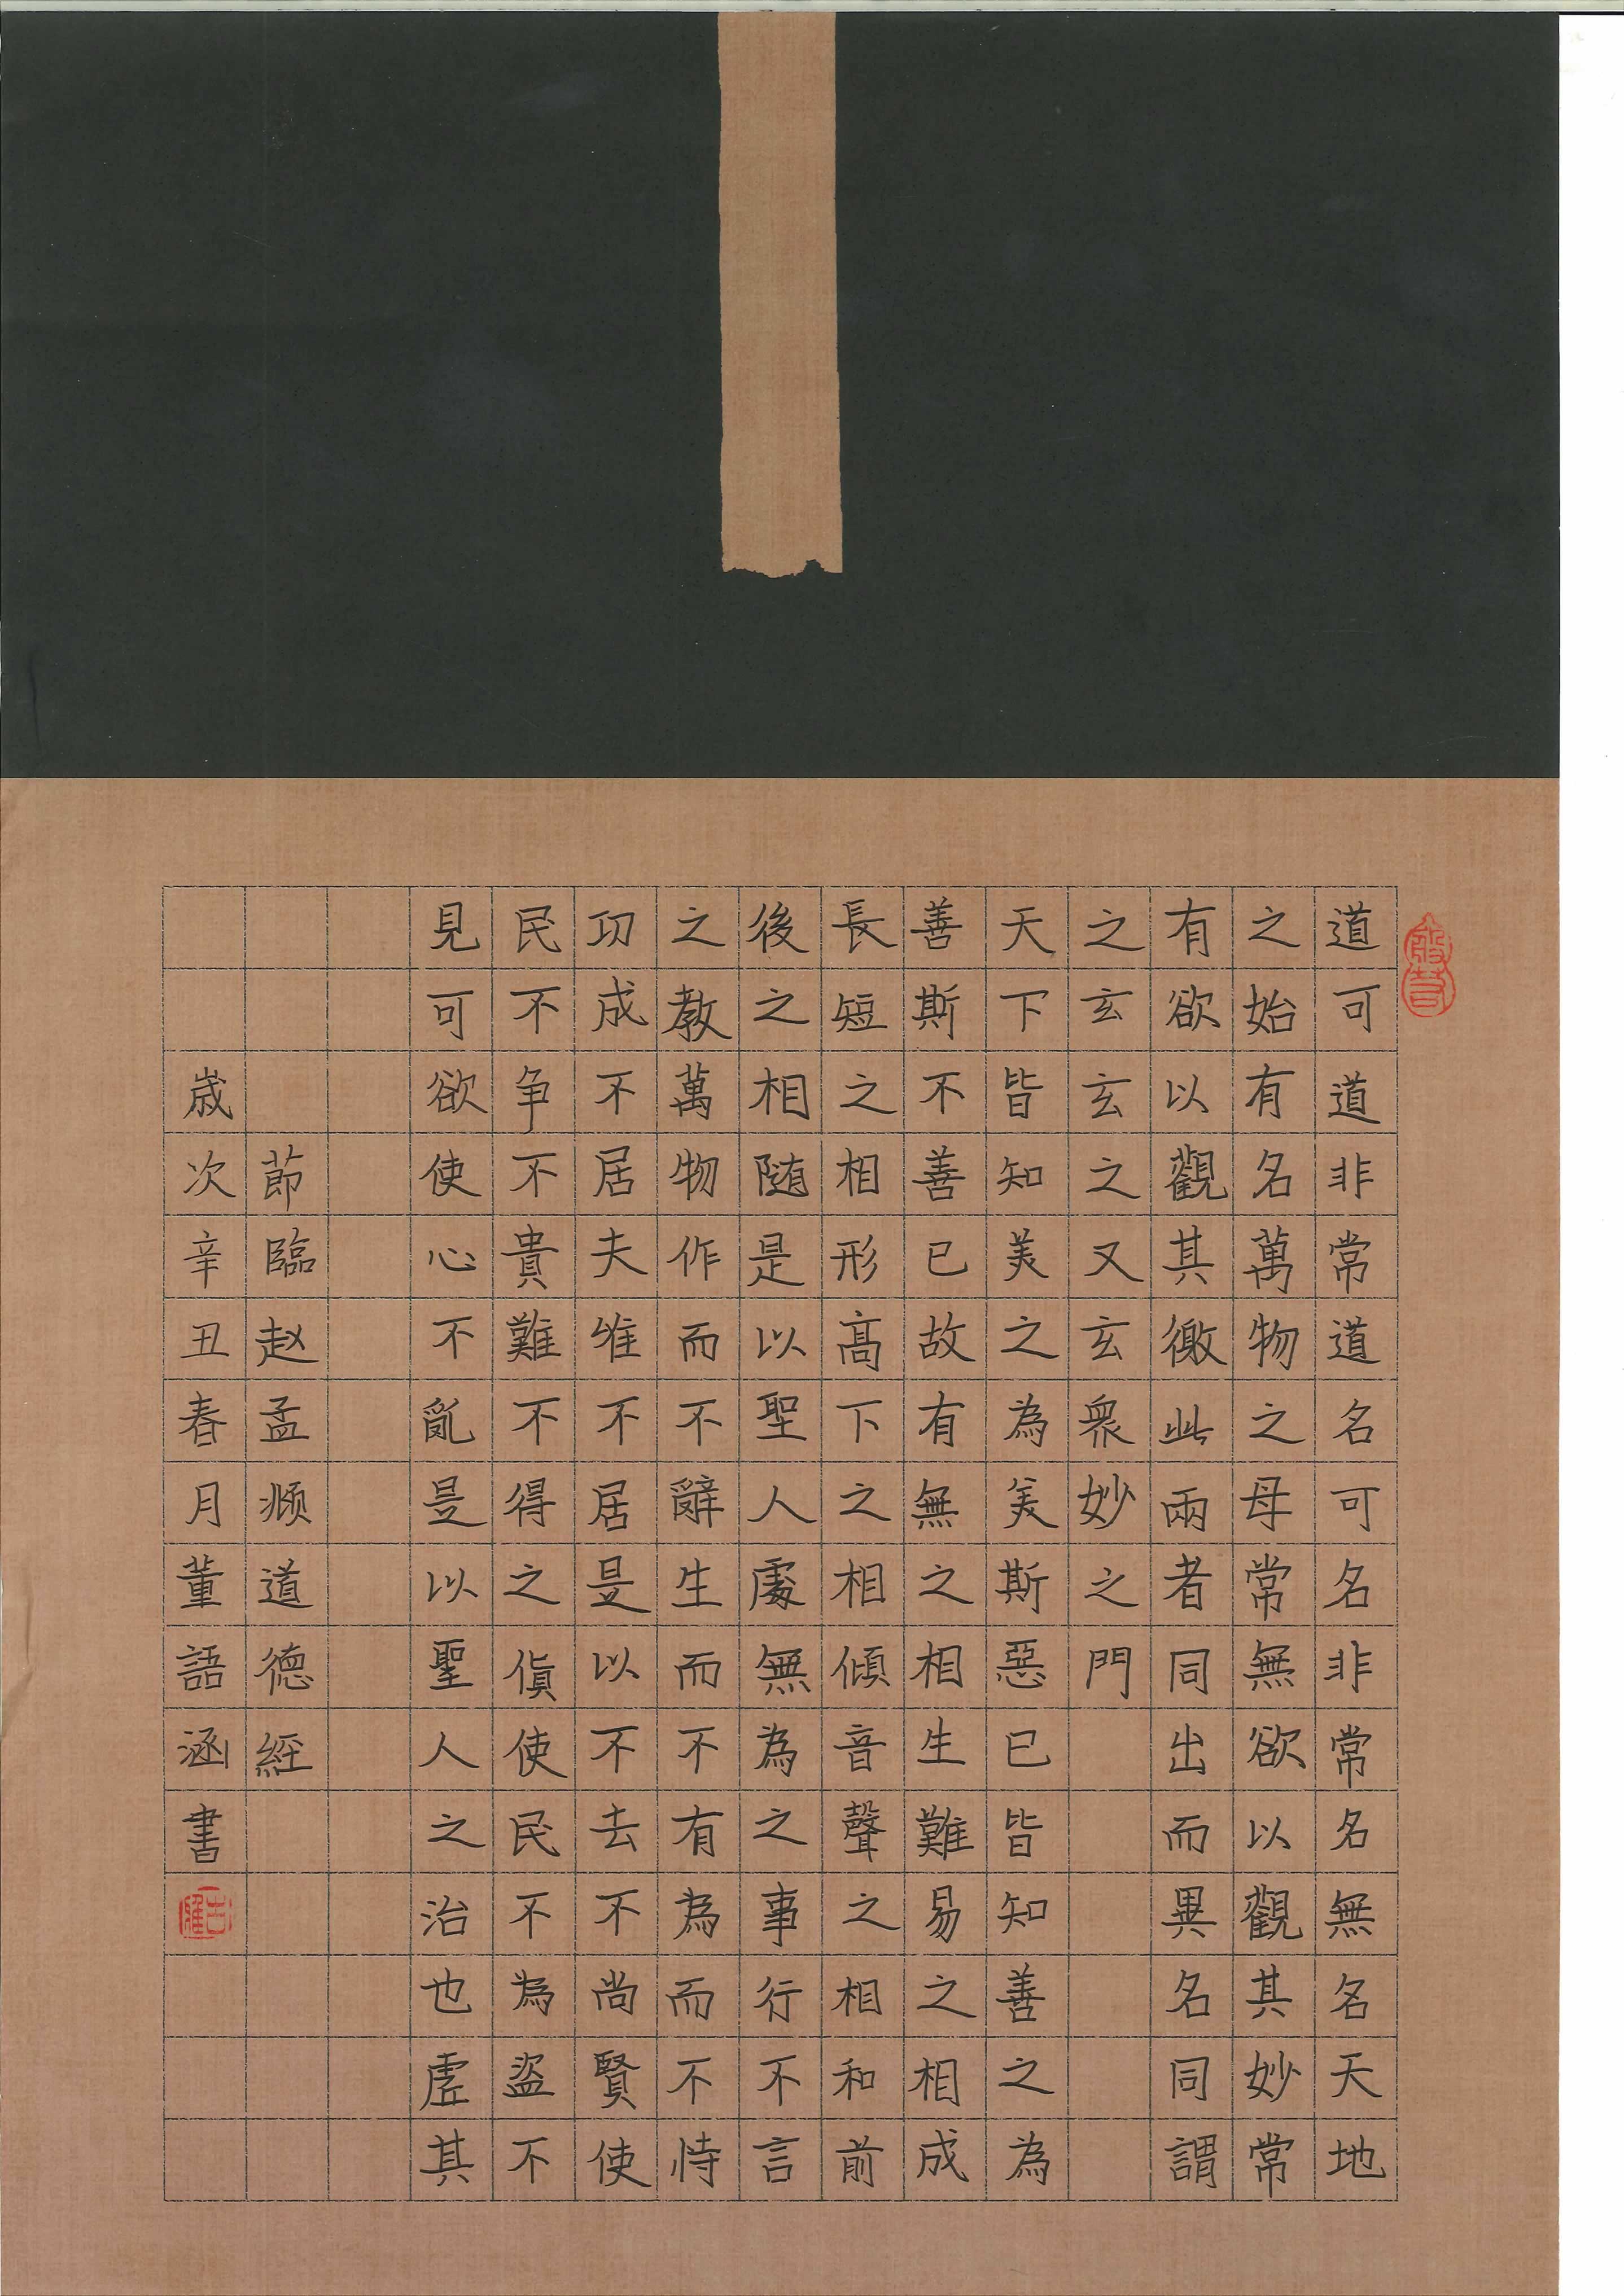 道可道非常道名可名非常名無名天地
之始有名萬物之母常無欲以觀其妙常
有欲以觀其徼此兩者同出而異名同謂
之玄玄之又玄衆妙之門
天下皆知美之為美斯惡已皆知善之為
善斯不善已故有無之相生難易之相成
長短之相形高下之相傾音聲之相和前
後之相随是以聖人處無為之事行不言
之教萬物作而不辭生而不有為而不恃
功成不居夫唯不居是以不去不尚賢使
民不争不貴難得之貨使民不為盗不
見可欲使心不亂是以聖人之治也虛其
節臨赵孟頫道德經
歲次辛丑春月董語涵書